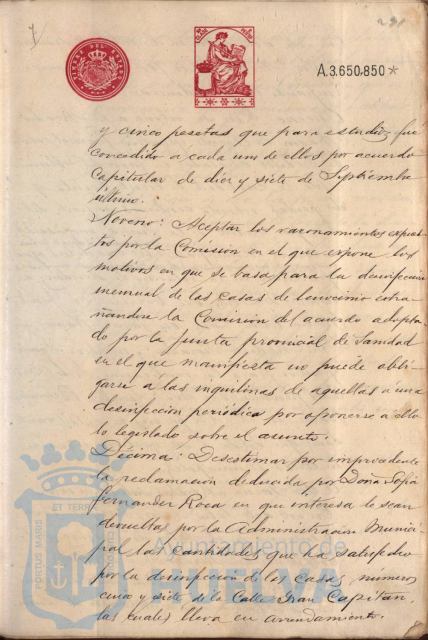 291
A.3.650.850*
y cinco pesetas que para estudios fue
concedido a cada uno de ellos por acuerdo
Capitular de diez y siete de Septiembre
último.
Noveno: Aceptar los razonamientos expues-
tos por la Comisión en el que expone los
motivos en que se basa para la desinfección
mensual de las casas de lenocinio
la Comisión del acuerdo adopta-
do por la Junta provincial de Sanidad
en el que manifiesta no puede obli-
garse a las inquilinas de aquellas a una
desinfección periódica por oponerse a ello
lo legislado sobre el asunto.
Décima: Desestimar por improcedente
la reclamación deducida por Doña Sofía
Fernandez Roca en que interesa le sean
devueltas por la Administración Munici-
pal las cantidades que ha satisfecho
por la desinfección de las casas, números
cinco y siete de la Calle Gran Capitan,
las cuales lleva en arrendamiento.
PORTUS MARIS ET TERRÆ
Ayuntamiento de
HUELVA